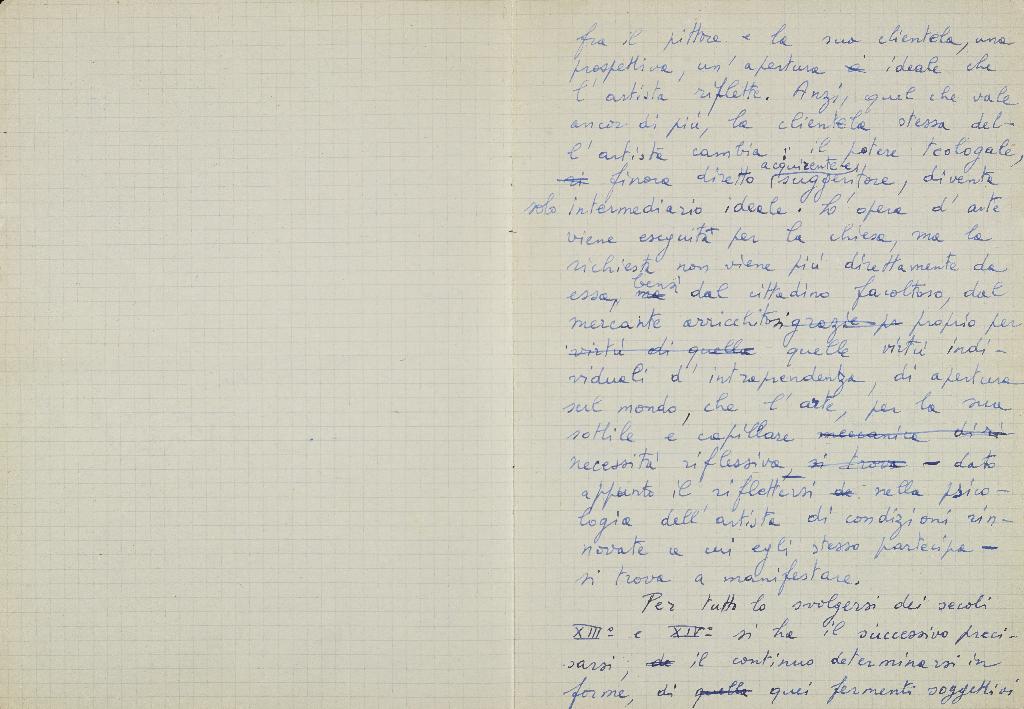 fra il pittore e la sua clientela, una
prospettiva, un' apertura e ideale che
l' artista riflette. Anzi, quel che vale
ancor di più, la clientela stessa del-
l' artista cambia : il potere teologale,
si finora diretto acquirente e suggeritore, diventa
solo intermediario ideale. L' opera d' arte
viene eseguita per la chiesa, ma la
richiesta non viene più direttamente da
essa, ma bensì dal cittadino facoltoso, dal
mercante arricchitosi grazie pr proprio per
virtù di quelle quelle virtù indi-
viduali d' intraprendenza, di apertura
sul mondo, che l' arte, per la sua
sottile e capillare meccanica di ri
necessità riflessiva, si trova - dato
appunto il riflettersi de nella psico-
logia dell' artista di condizioni rin-
novate a cui egli stesso partecipa -
si trova a manifestare.
Per tutto lo svolgersi dei secoli
XIII° e XIV° si ha il successivo preci-
sarsi, de il continuo determinarsi in
forme, di quella quei fermenti soggettivi